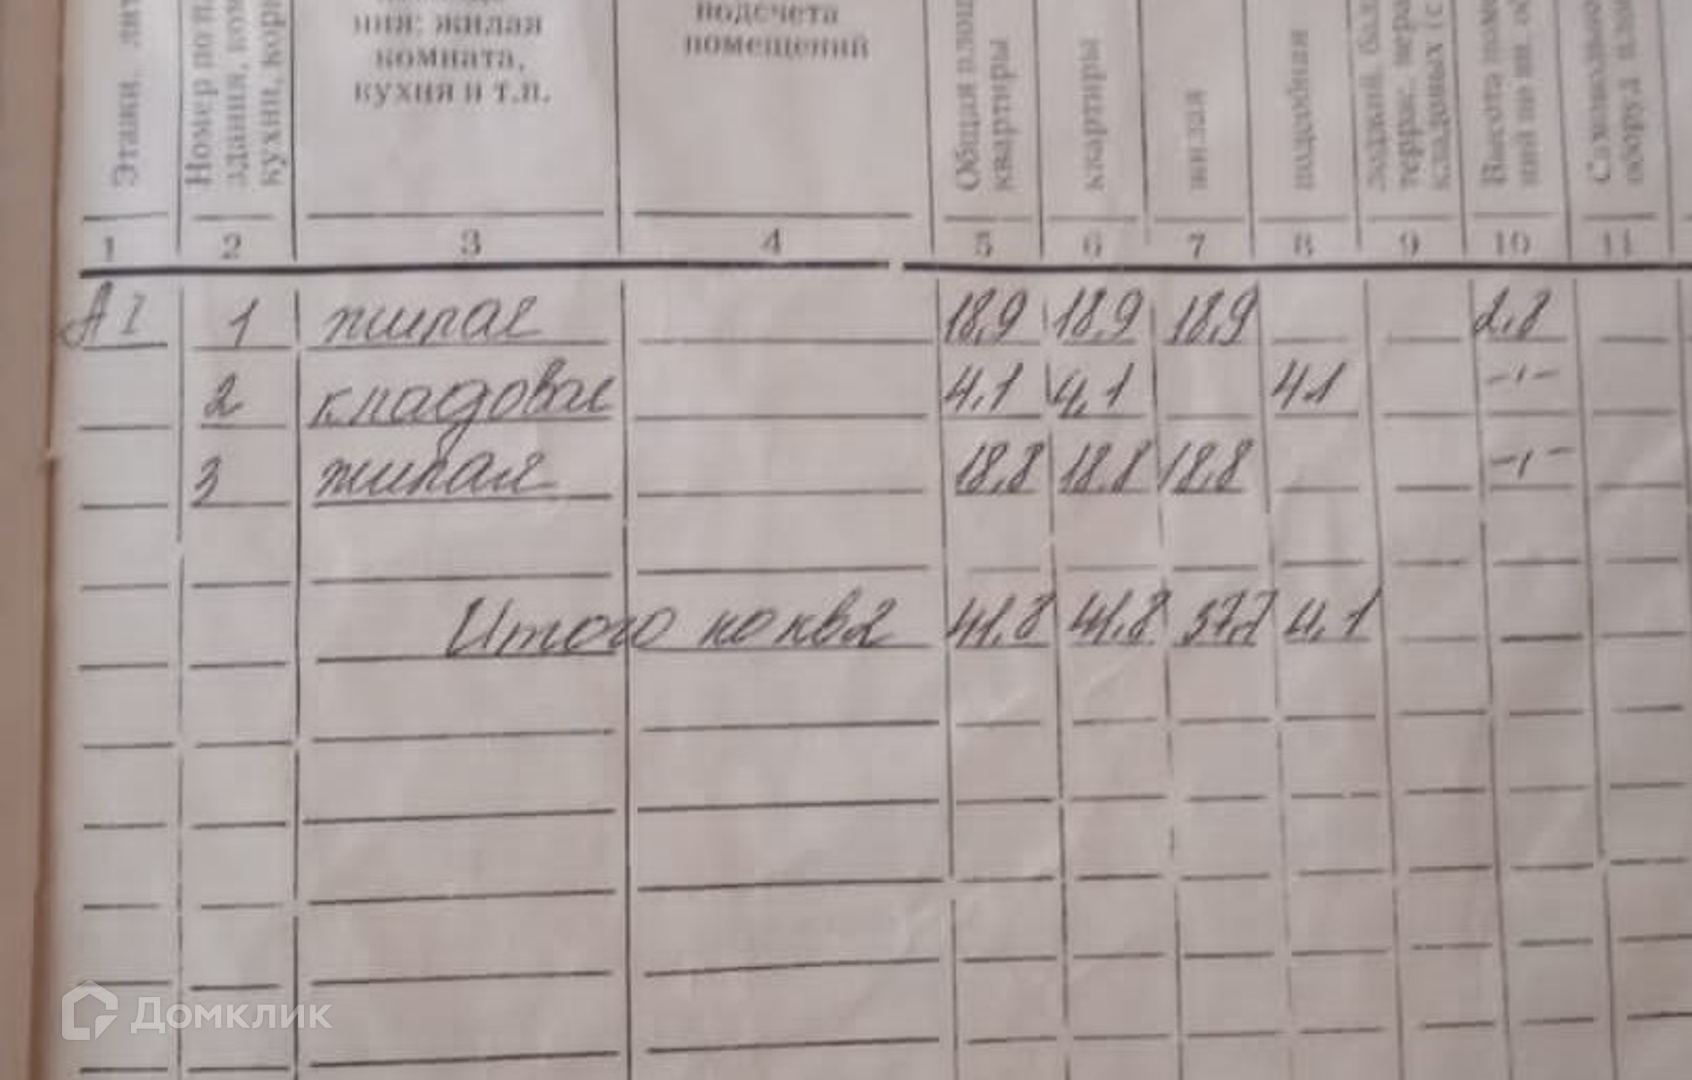 ния: жилая
комната,
кухня и т.п.
подсчета
помещений
Этажи, лит
Номер по п
здания, ком
кухни, кор
Общая площ
квартиры
квартиры
жилая
подсобная
лоджий, бал
террас, вера
кладовых (с
Высота поме
ний по вн. об
Самовольно
оборуд. пло
1 2 3 4 5 6 7 8 9 10 11
А I 1 жилая 18,9 18,9 18,9 2,8
2 кладовая 4,1 4,1 4.1 -ı-
3 жилая 18,8 18.8 18,8 -ı-
Итого по кв2 41,8 41,8 37,7 4,1
Домклик